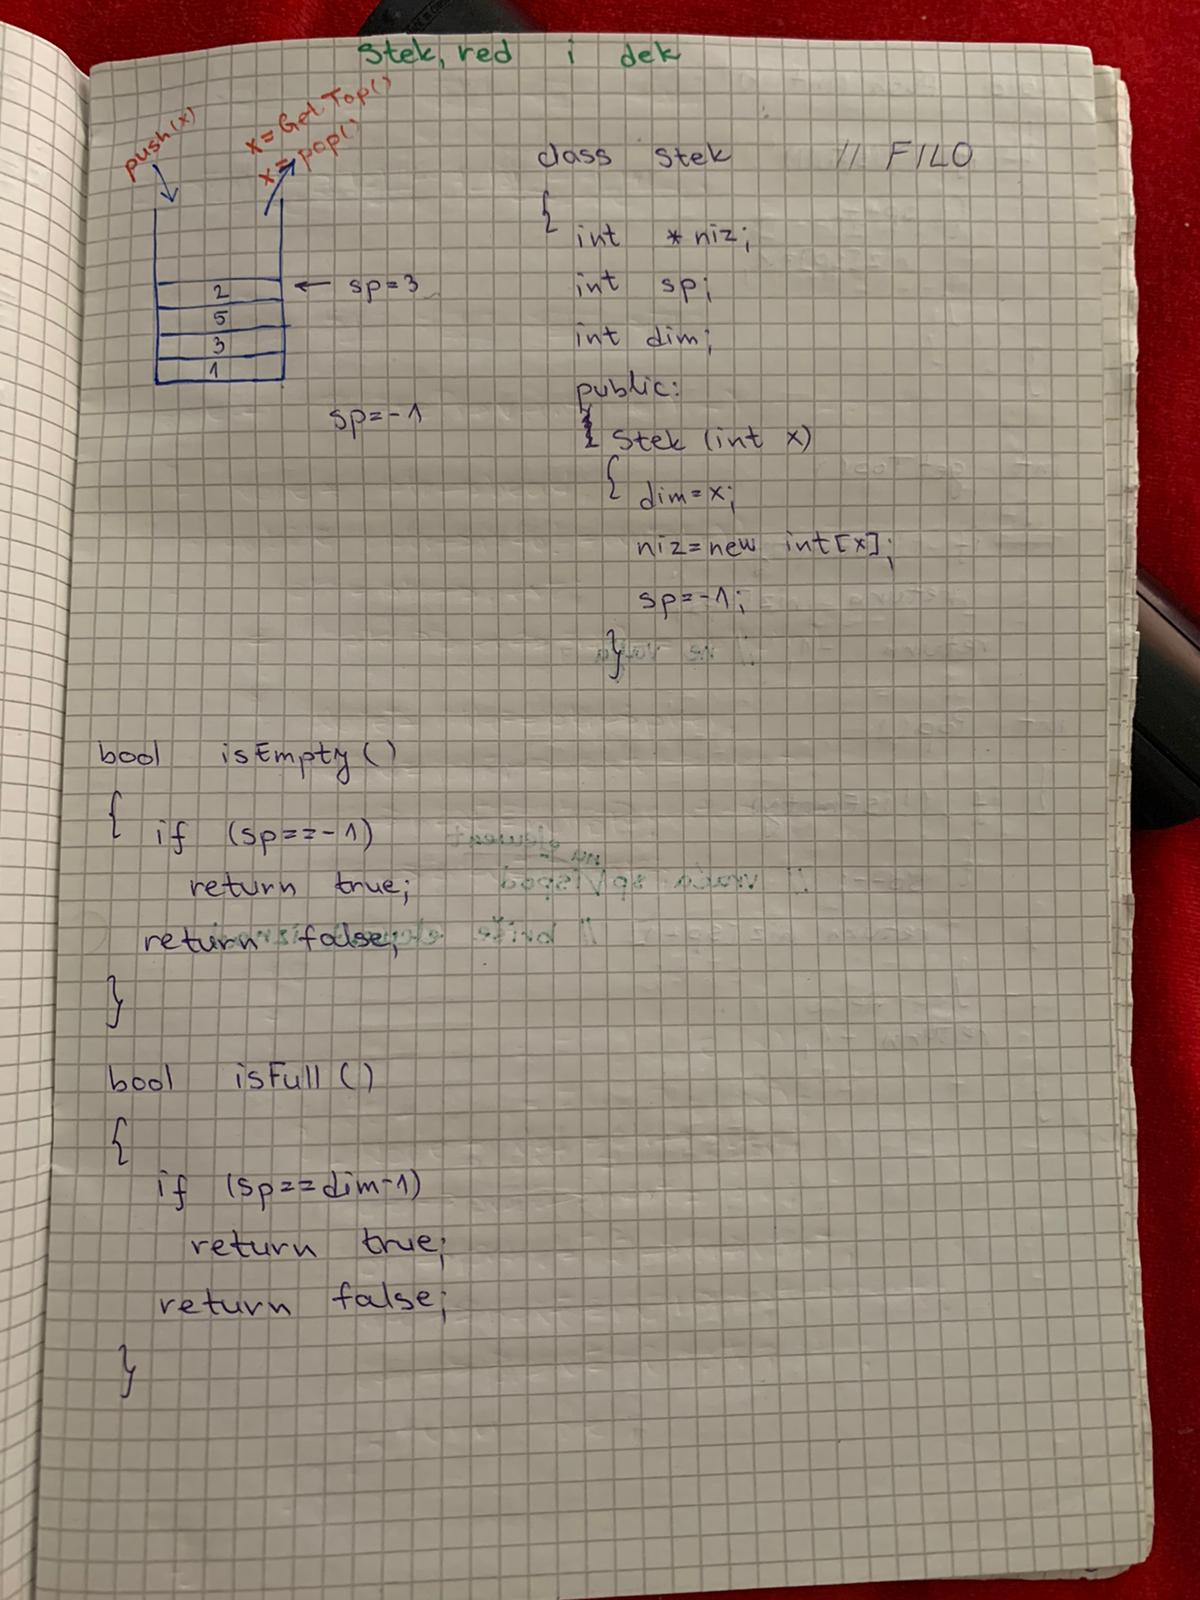 Stek, red i dek
push(x)
x=GetTop()
x=pop()
2
5
3
1
sp=3
sp=-1
class Stek // FILO
{
int *niz;
int sp;
int dim;
public:
Stek (int x)
{ dim=x;
niz=new int[x];
sp=-1;
}
bool isEmpty()
{ if (sp==-1)
return true;
return false;
}
bool isFull()
{
if (sp==dim-1)
return true;
return false;
}